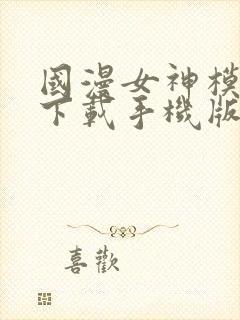 國漫女神模
下載手機版
喜歡